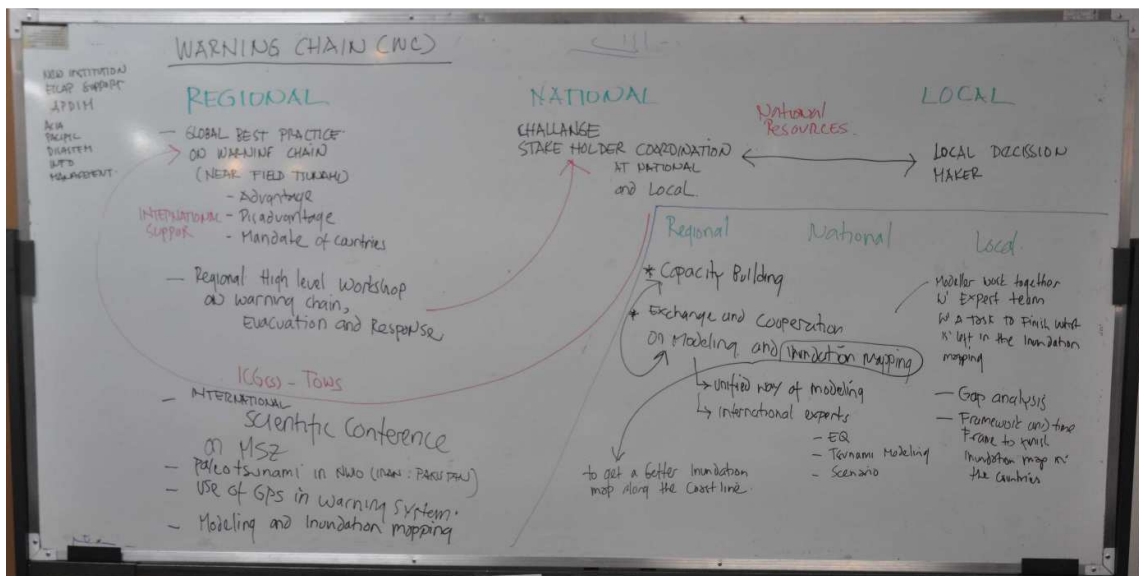 WARNING CHAIN (WC)
NEW INSTITUTION
ESCAP SUPPORT
APDIM
ASIA
PACIFIC
DISASTER
INFO
MANAGEMENT.
REGIONAL
- GLOBAL BEST PRACTICE
ON WARNINF CHAIN
(NEAR FIELD TSUNAMI)
- Advantage
- Disadvantage
- Mandate of countries
INTERNATIONAL
SUPPOR
- Regional High level Workshop
on warning chain,
Evacuation and Response
ICG(s) - TOWS
- INTERNATIONAL
Scientific Conference
on MSZ
- Paleotsunami in NWO (IRAN : PAKISTAN)
- Use of GPS in warning system.
- Modeling and Inundation mapping
NATIONAL
CHALLANGE
STAKE HOLDER COORDINATION
AT NATIONAL
and Local.
National
RESOURCES.
LOCAL
LOCAL DECISSION
MAKER
Regional
* Capacity Building
* Exchange and Cooperation
on Modeling and Inundation mapping
↳ Unified way of modeling
↳ International experts
- EQ
- Tsunami Modeling
- Scenario
to get a better Inundation
map along the Coastline.
National
Local.
Modeller work together
W' Expert team
W A Task to Finish what
is left in the Inundation
mapping
- Gap analysis
- Framework and time
Frame to finish
Inundation map in
the Countries